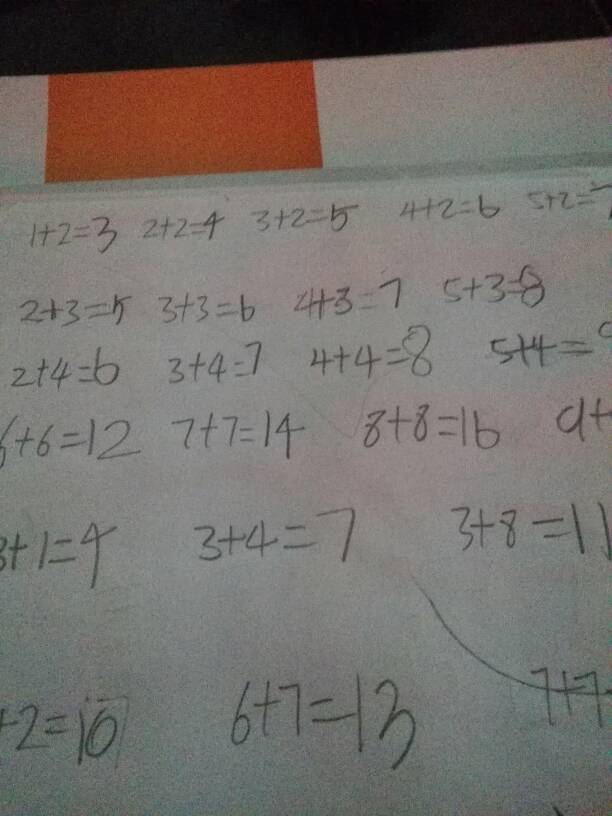 1+2=3 2+2=4 3+2=5 4+2=6 5+2=7
2+3=5 3+3=6 4+3=7 5+3=8
2+4=6 3+4=7 4+4=8 5+4=
6+6=12 7+7=14 8+8=16 9+
3+1=4 3+4=7 3+8=11
+2=10 6+7=13 7+7